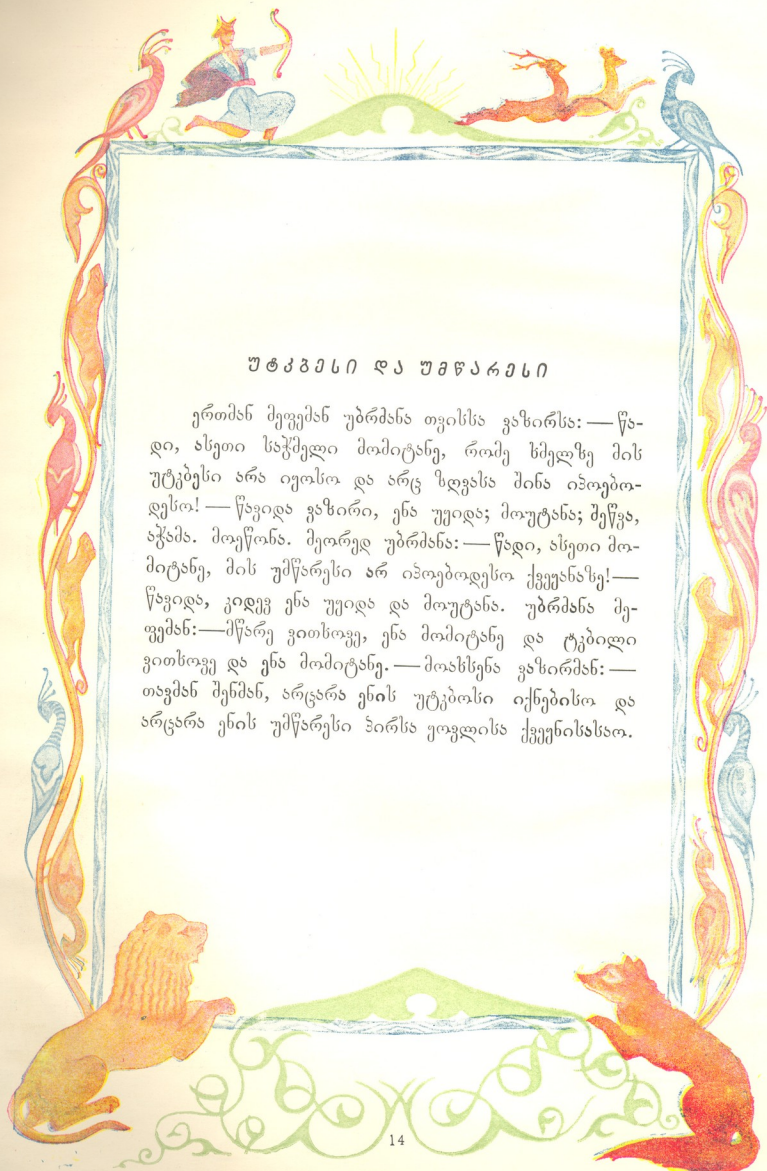 უტკბესი და უმწარესი
ერთმან მეფემან უბრძანა თვისსა ვაზირსა: — წა-
დი, ასეთი საჭმელი მომიტანე, რომე ხმელზე მის
უტკბესი არა იყოსო და არც ზღვასა შინა იპოებო-
დესო! — წავიდა ვაზირი, ენა უყიდა; მოუტანა; შეწვა,
აჭამა. მოეწონა. მეორედ უბრძანა: — წადი, ასეთი მო-
მიტანე, მის უმწარესი არ იპოებოდესო ქვეყანაზე! —
წავიდა, კიდევ ენა უყიდა და მოუტანა. უბრძანა მე-
ფემან: — მწარე ვითხოვე, ენა მომიტანე და ტკბილი
ვითხოვე და ენა მომიტანე. — მოახსენა ვაზირმან: —
თავმან შენმან, არცარა ენის უტკბოსი იქნებისო და
არცარა ენის უმწარესი პირსა ყოვლისა ქვეყნისასაო.
14